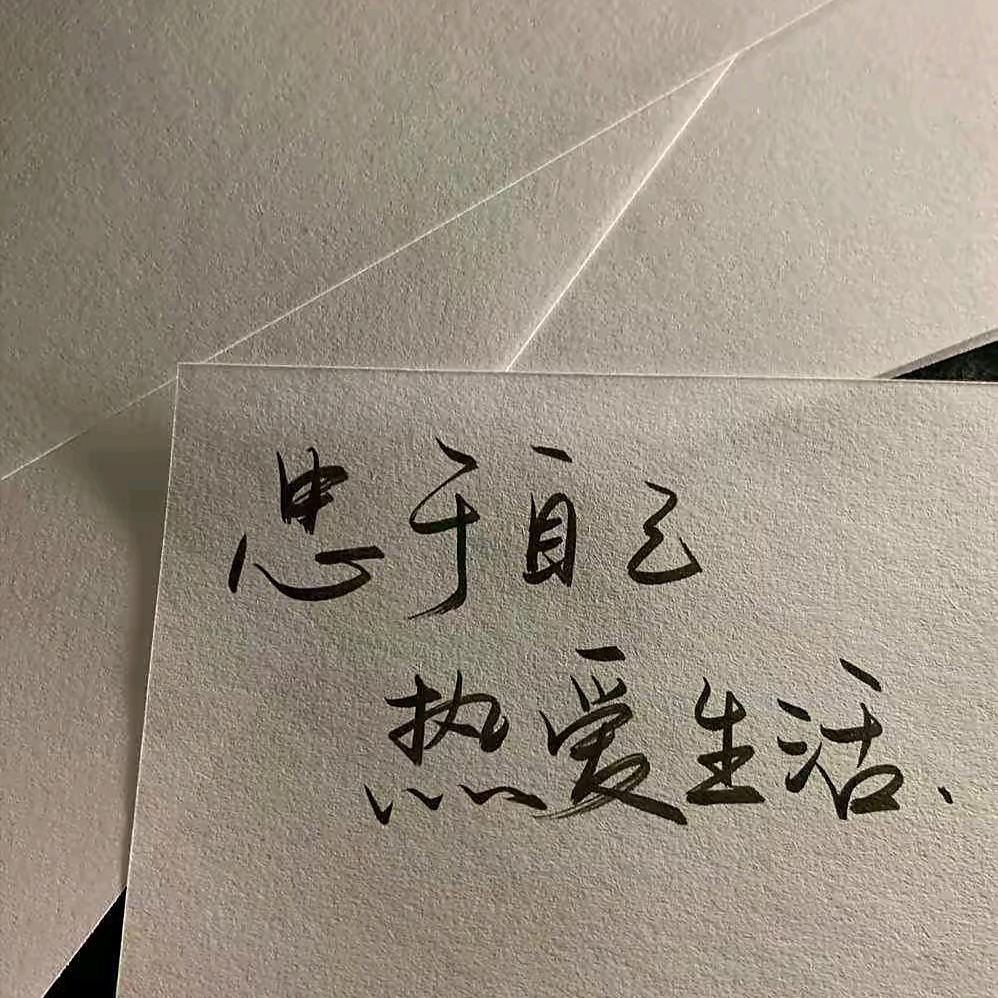 忠于自己
热爱生活.